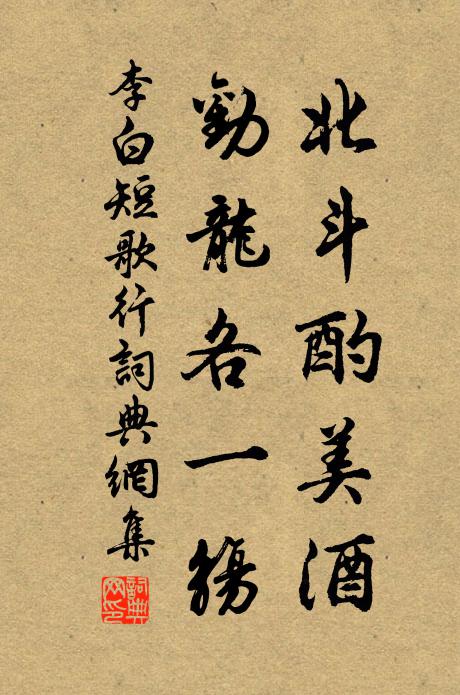 北斗酌美酒
勸龍各一觴
李白短歌行詞典網集
詞典網印